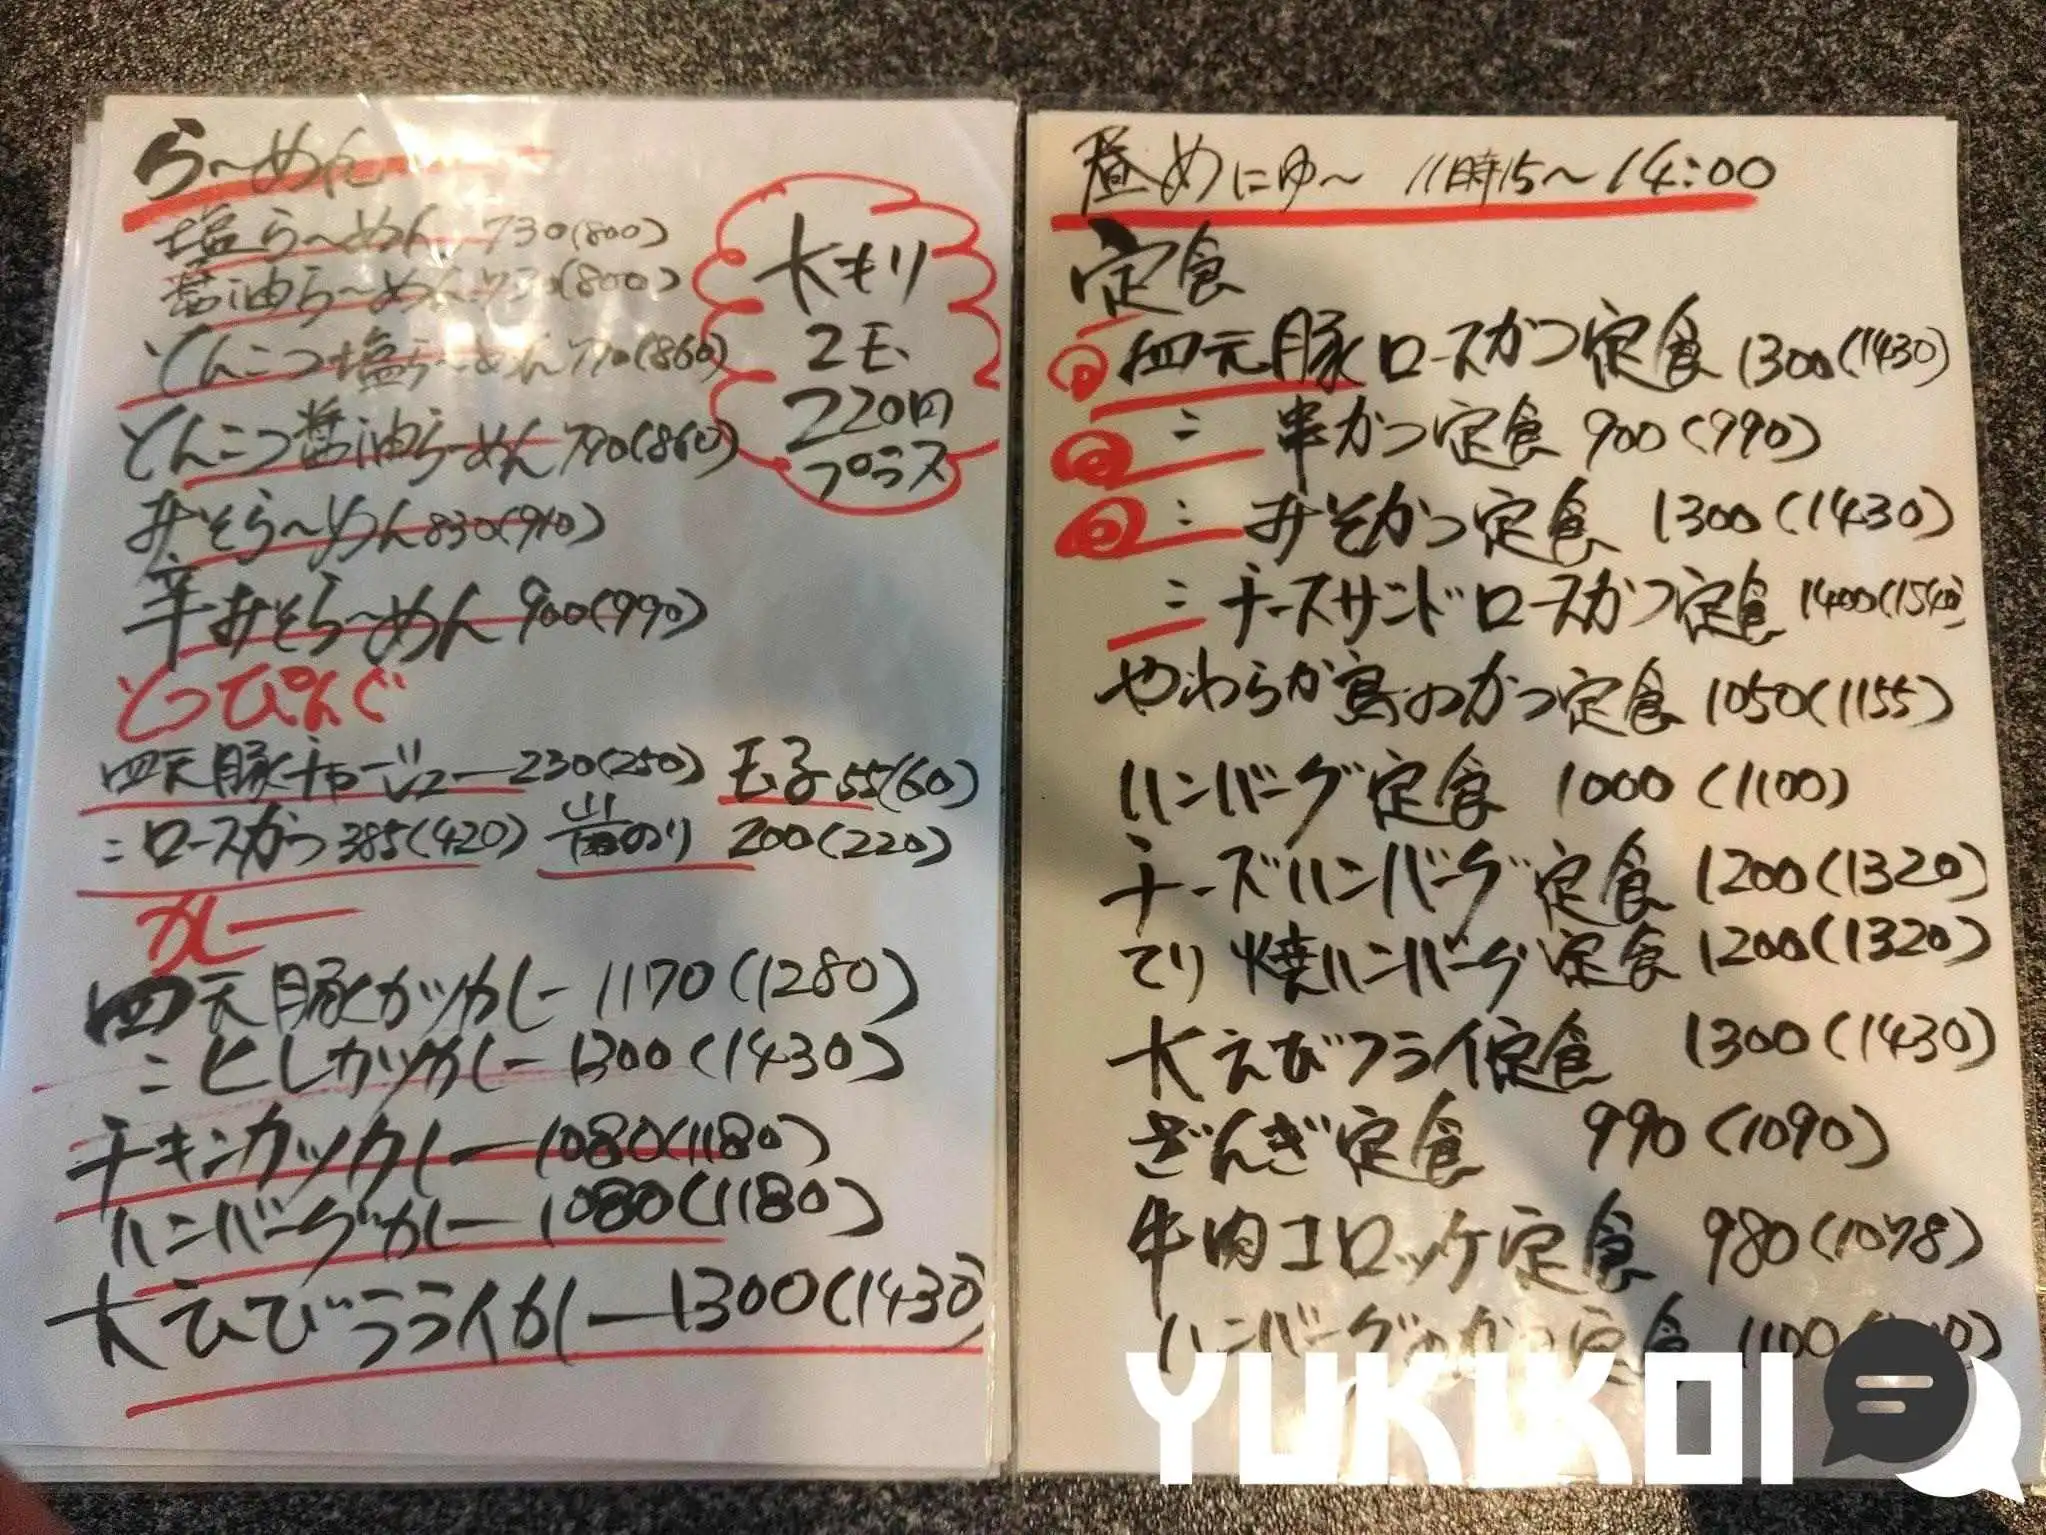 ら〜めん
塩ら〜めん 730(800)
醤油ら〜めん 730(800)
とんこつ塩ら〜めん 790(860)
とんこつ醤油ら〜めん 790(860)
みそら〜めん 830(910)
辛みそら〜めん 900(990)
大もり
2玉
220円
プラス
とっぴんぐ
四元豚チャーシュー 230(250) 玉子 55(60)
〃ロースかつ 385(420) 岩のり 200(220)
カレー
四元豚カツカレー 1170(1280)
〃ヒレカツカレー 1300(1430)
チキンカツカレー 1080(1180)
ハンバーグカレー 1080(1180)
大えびフライカレー 1300(1430)
昼めにゅ〜 11時15〜14:00
定食
四元豚ロースかつ定食 1300(1430)
〃 串かつ定食 900(990)
〃 みそかつ定食 1300(1430)
〃 チーズサンドロースかつ定食 1400(1540)
やわらか鳥のかつ定食 1050(1155)
ハンバーグ定食 1000(1100)
チーズハンバーグ定食 1200(1320)
てり焼ハンバーグ定食 1200(1320)
大えびフライ定食 1300(1430)
ざんぎ定食 990(1090)
牛肉コロッケ定食 980(1078)
ハンバーグのかつ定食 1100
YUKIKOI